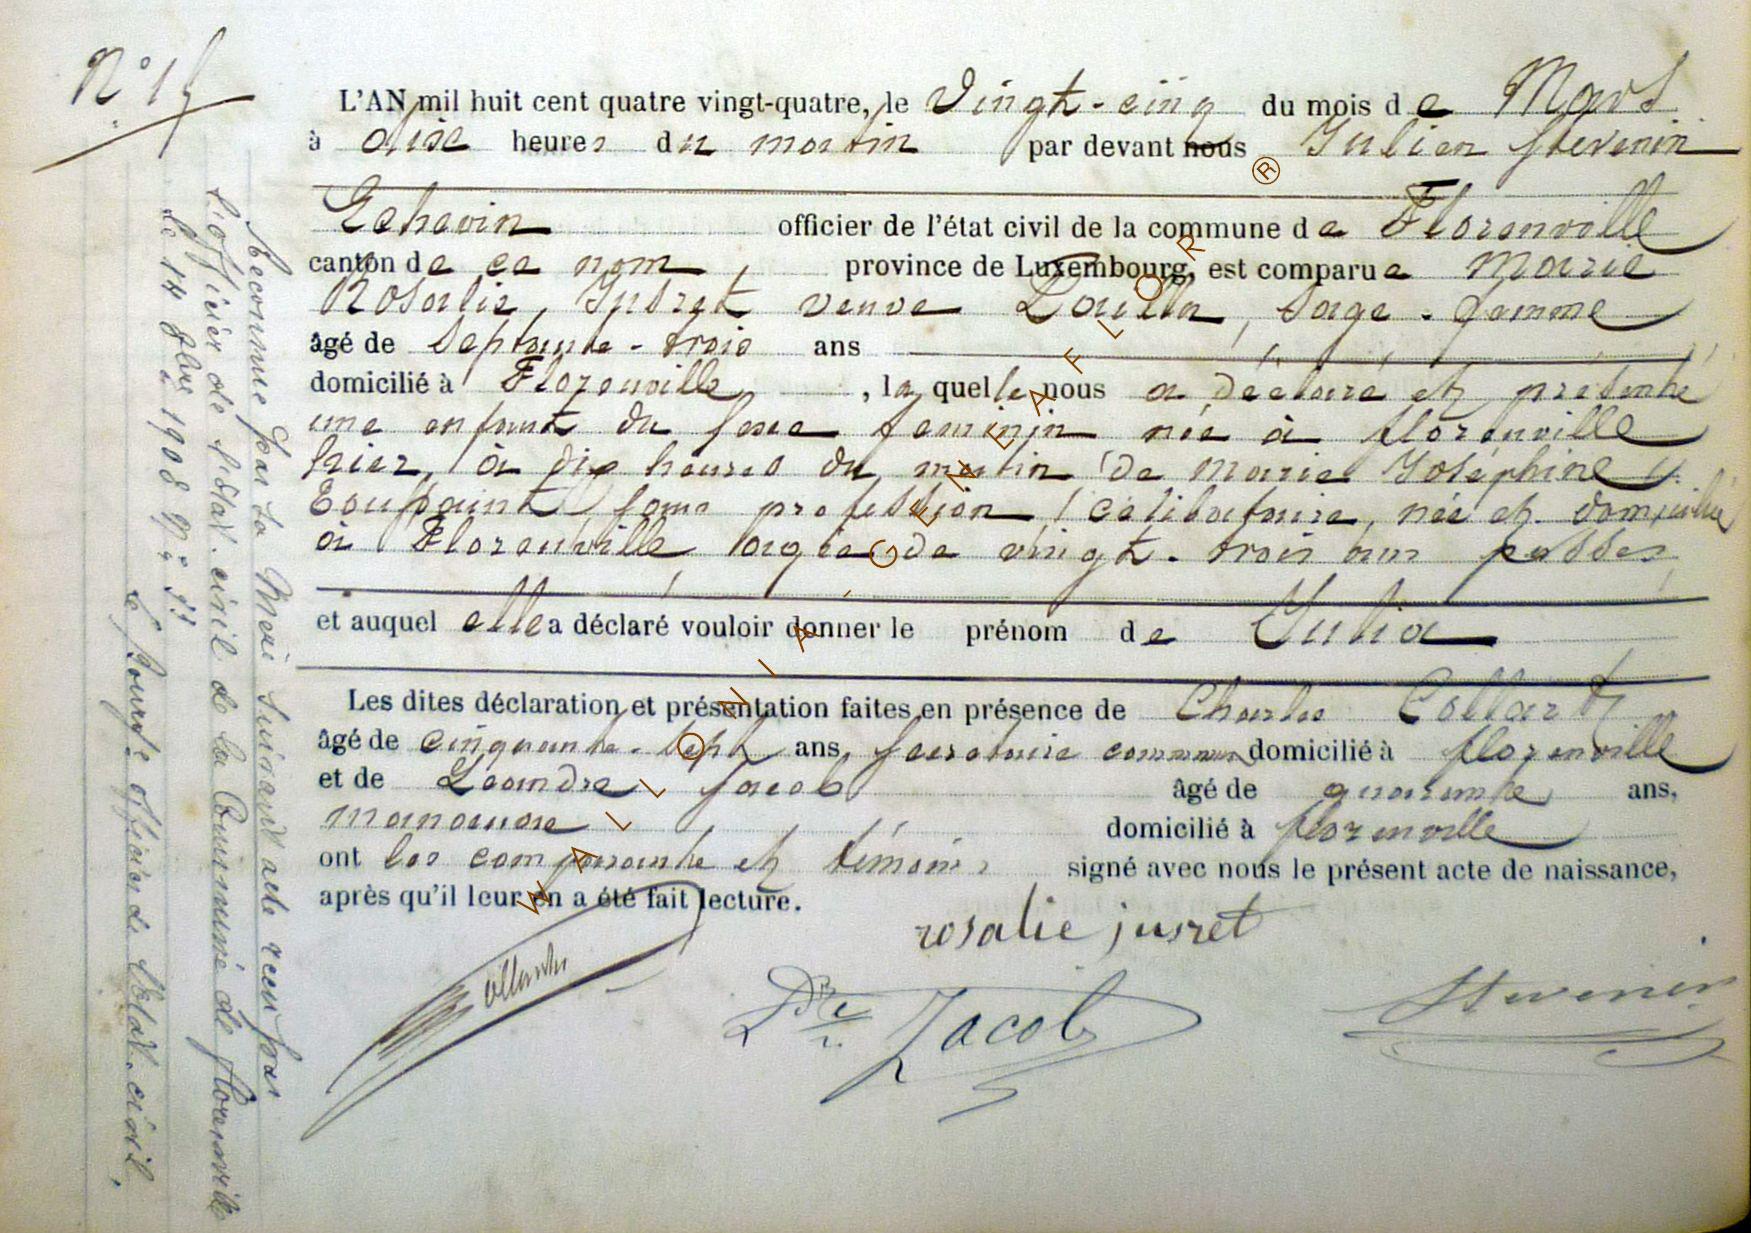 N° 15
L'AN mil huit cent quatre vingt-quatre, le Vingt-cinq du mois de Mars
à onze heures du matin par devant nous Julien Stevenin
Echevin officier de l'état civil de la commune de Florenville
canton de ce nom, province de Luxembourg, est comparue Marie
Rosalie, Jusret veuve sage-femme
âgé de septante-trois ans
domicilié à Florenville, laquelle nous a déclaré et présenté
une enfant du sexe féminin née à florenville
hier, à dix heures du matin de Marie Joséphine
sans profession, célibataire, née et domiciliée
à Florenville âgée de vingt-trois ans passés
et auquel elle a déclaré vouloir donner le prénom de Julia
Les dites déclaration et présentation faites en présence de Charles Collart
âgé de cinquante-sept ans, secrétaire communal domicilié à florenville
et de Léandre Jacob âgé de quarante ans,
manœuvre domicilié à florenville
ont les comparante et témoins signé avec nous le présent acte de naissance,
après qu'il leur en a été fait lecture.
rosalie jusret
Collart
Jacob
Stevenin
Reconnue par la Mère suivant acte reçu par
l'officier de l'état-civil de la Commune de florenville
le 14 8bre 1908 N°
Le Bourgtre officier de l'état-civil,
WALLONIA, GENEAFLOR ®